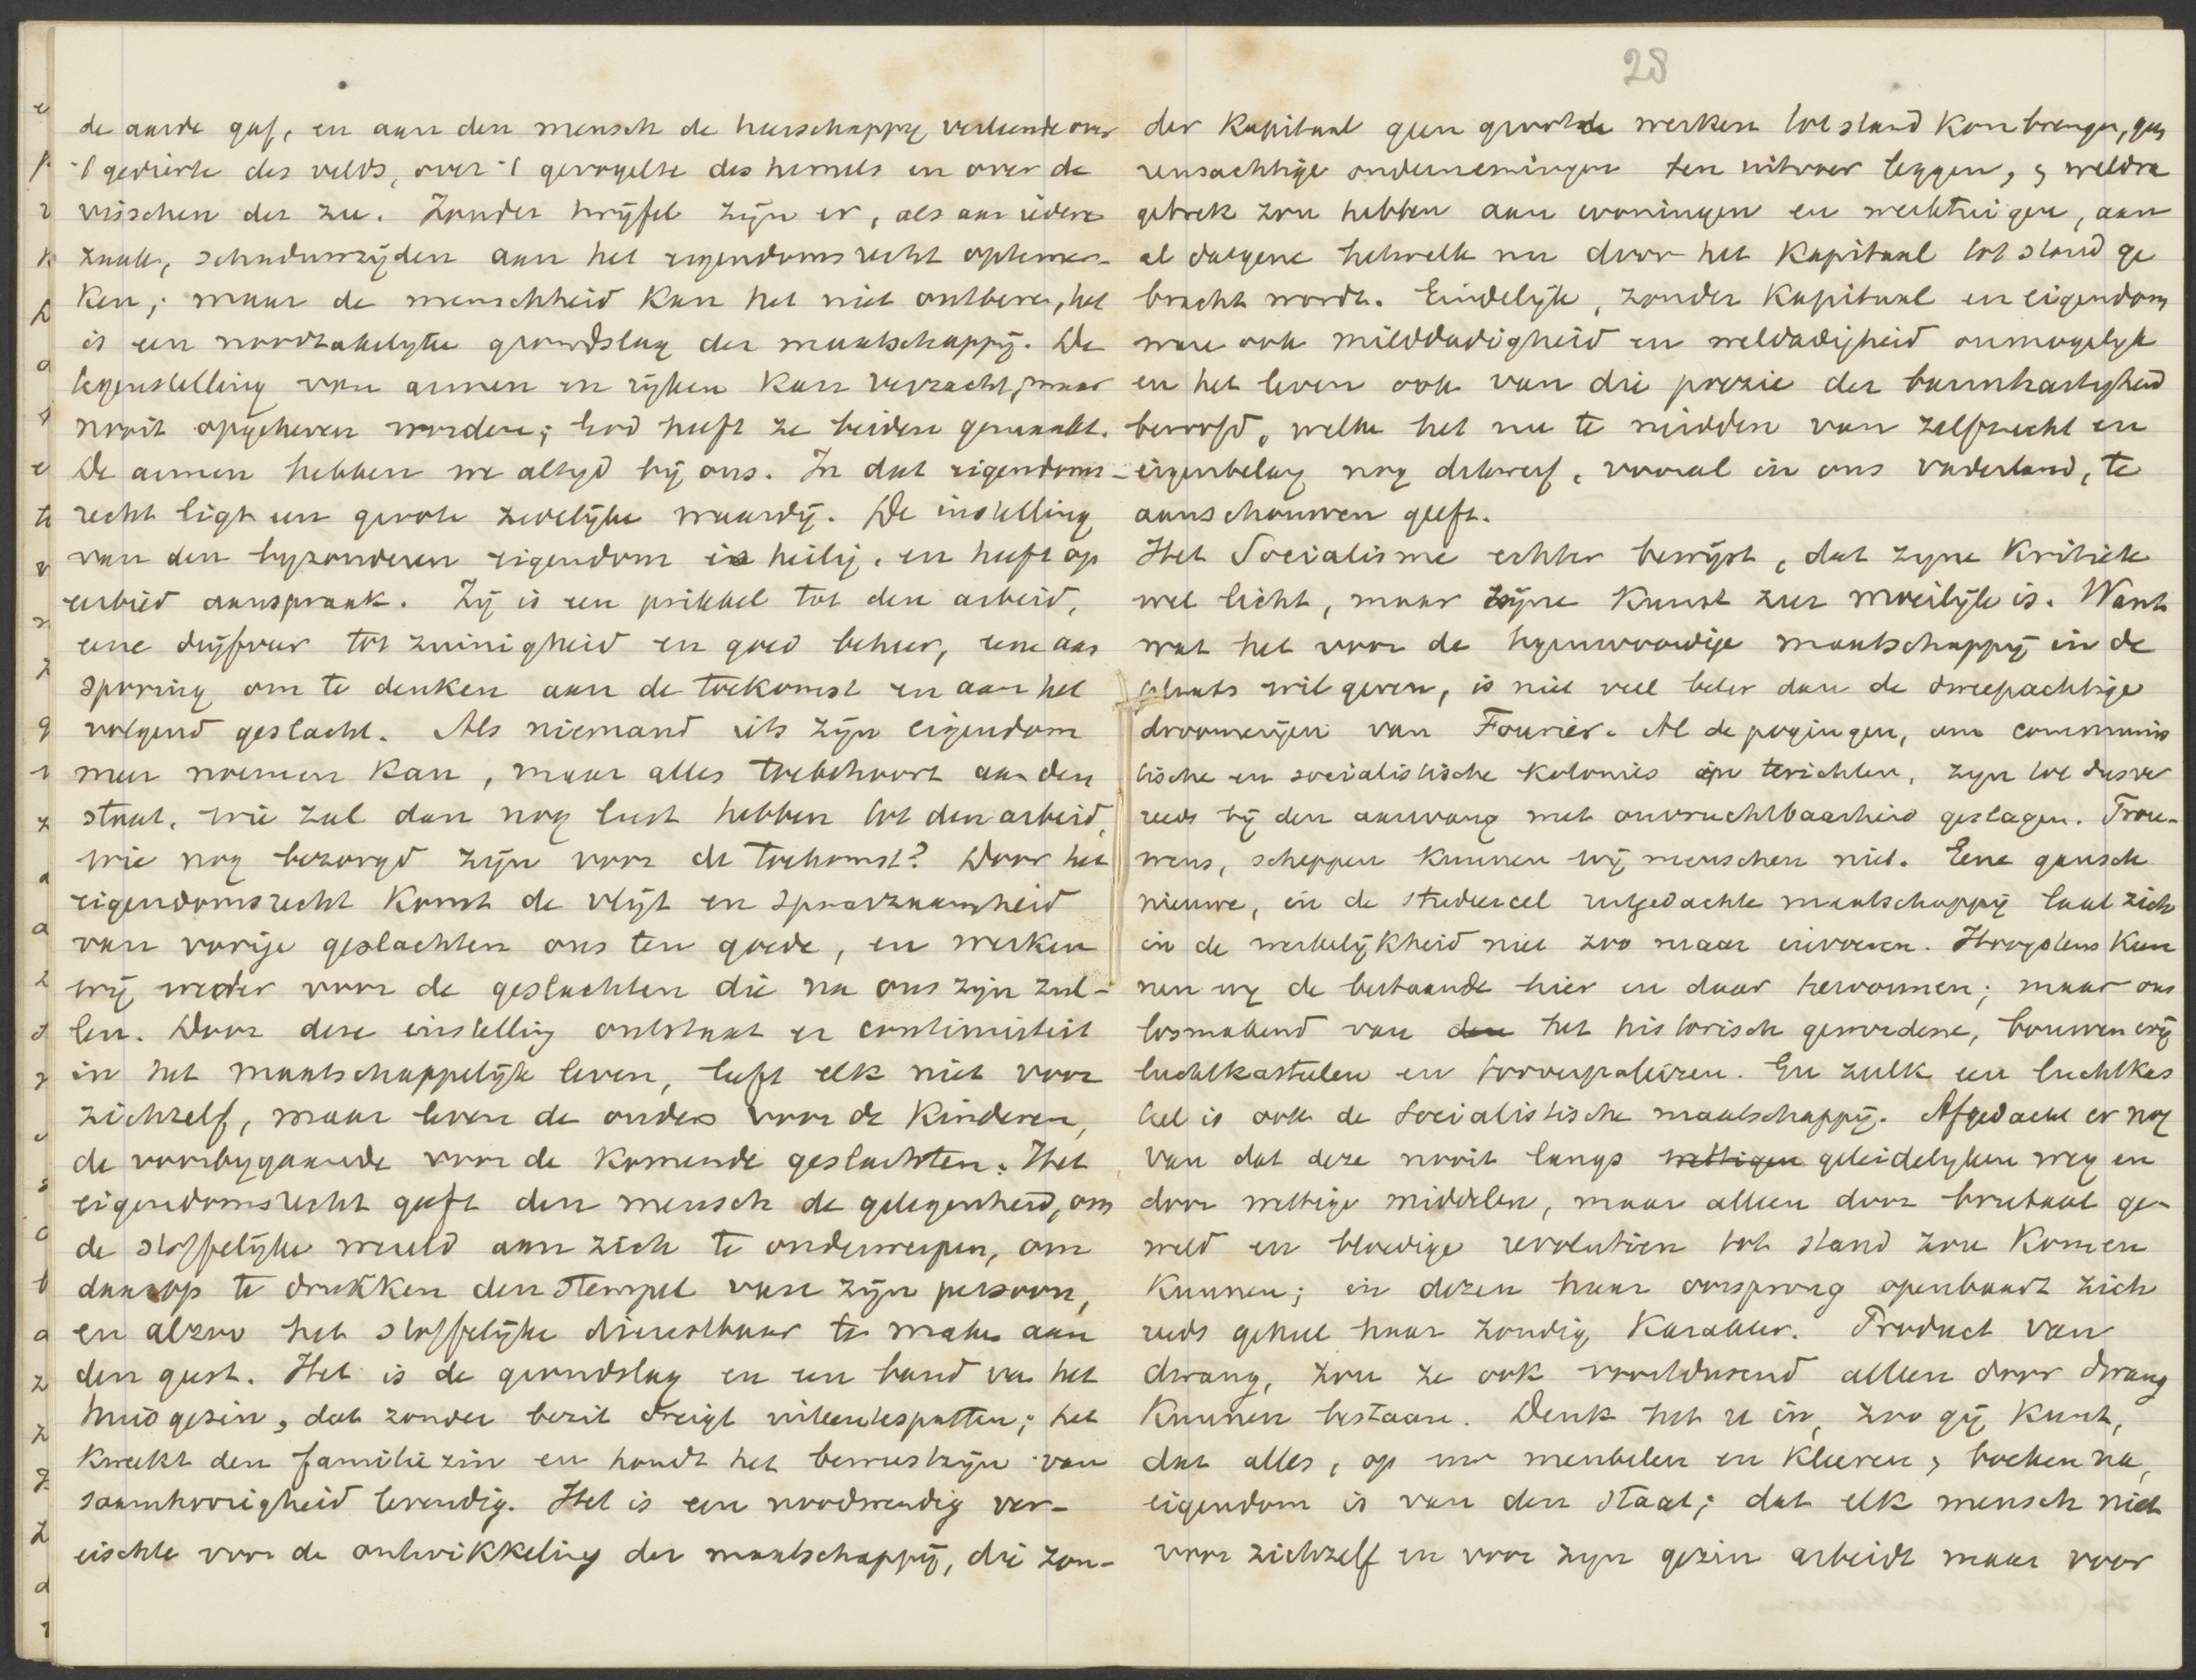 de aarde gaf, en aan den mensch de heerschappij verleende over
't gedierte des velds, over 't gevogelte des hemels en over de
visschen der zee. Zonder twijfel zijn er, als aan iedere
zaak, schaduwzijden aan het eigendomsrecht optemer-
ken; maar de menschheid kan het niet ontberen, het
is een noodzakelijke grondslag der maatschappij. De
tegenstelling van armen en rijken kan verzacht, maar
nooit opgeheven worden; God heeft ze beiden gemaakt.
De armen hebben we altijd bij ons. In dat eigendoms-
recht ligt een groote zedelijke waardij. De instelling
van den byzonderen eigendom is heilig, en heeft op
eerbied aanspraak. Zij is een prikkel tot den arbeid,
eene drijfveer tot zuinigheid en goed beheer, eene aan
sporing om te denken aan de toekomst en aan het
volgend geslacht. Als niemand iets zijn eigendom
meer noemen kan, maar alles toebehoort aan den
staat, wie zal dan nog lust hebben tot den arbeid,
wie nog bezorgd zijn voor de toekomst? Door het
eigendomsrecht komt de vlijt en spaarzaamheid
van vorige geslachten ons ten goede, en werken
wij weder voor de geslachten die na ons zijn zul-
len. Door deze instelling ontstaat er continuiteit
in het maatschappelijk leven, leeft elk niet voor
zichzelf, maar leven de ouders voor de kinderen,
de voorbygaande voor de komende geslachten. Het
eigendomsrecht geeft den mensch de gelegenheid, om
de stoffelijke wereld aan zich te onderwerpen, om
daarop te drukken den stempel van zijn persoon,
en alzoo het stoffelijke dienstbaar te maken aan
den geest. Het is de grondslag en een band van het
huisgezin, dat zonder bezit dreigt uiteentespatten; het
kweekt den familiezin en houdt het bewustzijn van
saamhoorigheid levendig. Het is een noodwendig ver-
eischte voor de ontwikkeling der maatschappij, die zon-
28
der kapitaal geen groote werken tot stand kon brengen, geen
reusachtige ondernemingen ten uitvoer leggen, & weldra
gebrek zou hebben aan woningen en werktuigen, aan
al datgene hetwelk nu door het kapitaal tot stand ge
bracht wordt. Eindelijk, zonder kapitaal en eigendom
ware ook milddadigheid en weldadigheid onmogelijk
en het leven ook van die poezie der barmhartigheid
beroofd, welke het nu te midden van zelfzucht en
eigenbelang nog dikwerf, vooral in ons vaderland, te
aanschouwen geeft.
Het Socialisme echter bewijst, dat zyne kritiek
wel licht, maar zijne kunst zeer moeilijk is. Want
wat het voor de tegenwoordige maatschappij in de
plaats wil geven, is niet veel beter dan de dweepachtige
droomerijen van Fourier. Al de pogingen, om communis
tische en socialistische kolonies in terichten, zyn tot dusver
reeds bij den aanvang met onvruchtbaarheid geslagen. Trou-
wens, scheppen kunnen wij menschen niet. Eene gansch
nieuwe, in de studeercel uitgedachte maatschappij laat zich
in de werkelijkheid niet zoo maar invoeren. Hoogstens kun
nen wij de bestaande hier en daar hervormen; maar ons
losmakend van den het historisch gewordene, bouwen wij
luchtkasteelen en tooverpaleizen. En zulk een luchtkas
teel is ook de socialistische maatschappij. Afgedacht er nog
van dat deze nooit langs wettigen geleidelyken weg en
door wettige middelen, maar alleen door brutaal ge-
weld en bloedige revolutien tot stand zou komen
kunnen; in dezen haar oorsprong openbaart zich
reeds geheel haar zondig karakter. Product van
dwang, zou ze ook voortdurend alleen door dwang
kunnen bestaan. Denk het u in, zoo gij kunt,
dat alles, op uw meubelen en kleeren & boeken na,
eigendom is van den staat; dat elk mensch niet
voor zichzelf en voor zyn gezin arbeidt maar voor